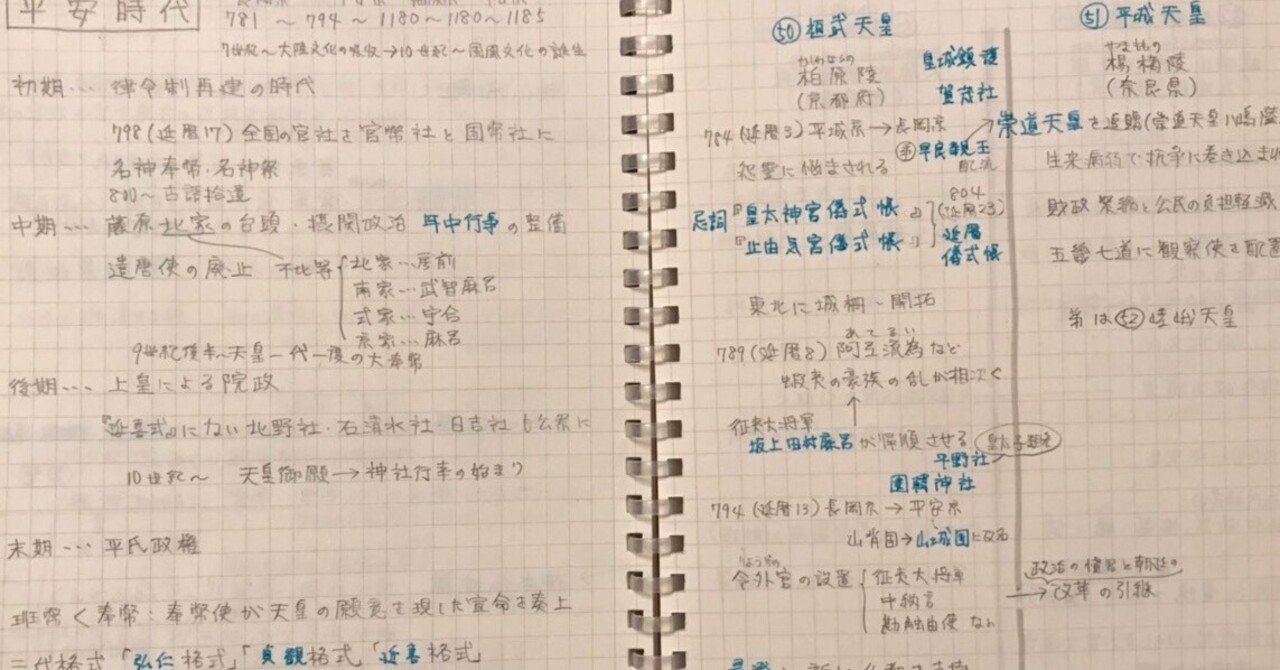 平安時代
781 ～ 794 ～ 1180～1180～1185
7世紀～大陸文化の吸収→10世紀～国風文化の誕生
初期… 律令制再建の時代
798(延暦17) 全国の官社を官幣社と国幣社に
名神奉幣・名神祭
古語拾遺
中期… 藤原北家の台頭・摂関政治 年中行事の整備
遣唐使の廃止 不比等
北家…房前
南家…武智麻呂
式家…宇合
京家…麻呂
9世紀後半～天皇一代一度の大奉幣
後期… 上皇による院政
『延喜式』にない北野社・石清水社・日吉社も公祭に
10世紀～ 天皇御願→神社行幸の始まり
末期… 平氏政権
班幣く奉幣：奉幣使が天皇の願意を現した宣命を奏上
三代格式「弘仁格式」「貞観格式」「延喜格式」
㊿ 桓武天皇
かしわばらの
柏原陵
(京都府)
皇城鎮護
賀茂社
784(延暦3) 平城京→長岡京
怨霊に悩まされる
弟 早良親王
配流
忌詞『皇太神宮儀式帳』
『止由気宮儀式帳』
804
(延暦23)
延暦
儀式帳
東北に城柵・開拓
あてるい
789(延暦8) 阿弖流為など
蝦夷の豪族の乱が相次ぐ
征夷大将軍
坂上田村麻呂が帰順させる
平野社
園韓神社
794(延暦13) 長岡京→平安京
山背国→山城国に改名
りょうげの
令外官の設置
征夷大将軍
中納言
勘解由使 など
51 平城天皇
やまももの
楊梅陵
(奈良県)
崇道天皇を追贈(崇道天皇八嶋陵
生来病弱で抗争に巻き込まれ
財政緊縮と公民の負担軽減
五畿七道に観察使を配置
弟は52嵯峨天皇
政治の慣習と朝廷の
→改革の引継